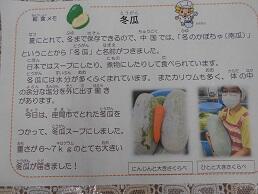 給食メモ
冬瓜
とうがん
夏にとれて、冬まで保存できるので、中国では、「冬のかぼちゃ（南瓜）」
ということから「冬瓜」と名前がつきました。
日本ではスープにしたり、煮物にしたりして食べられています。
冬瓜には水分が多くふくまれています。またカリウムも多く、体の中
の余分な塩分を外に出す働き
があります。
今日は、座間市でとれた冬瓜を
つかって、冬瓜スープにしました。
重さが6～7kgのとても大きい
冬瓜が届きました！
にんじんと大きさくらべ
ひとと大きさくらべ